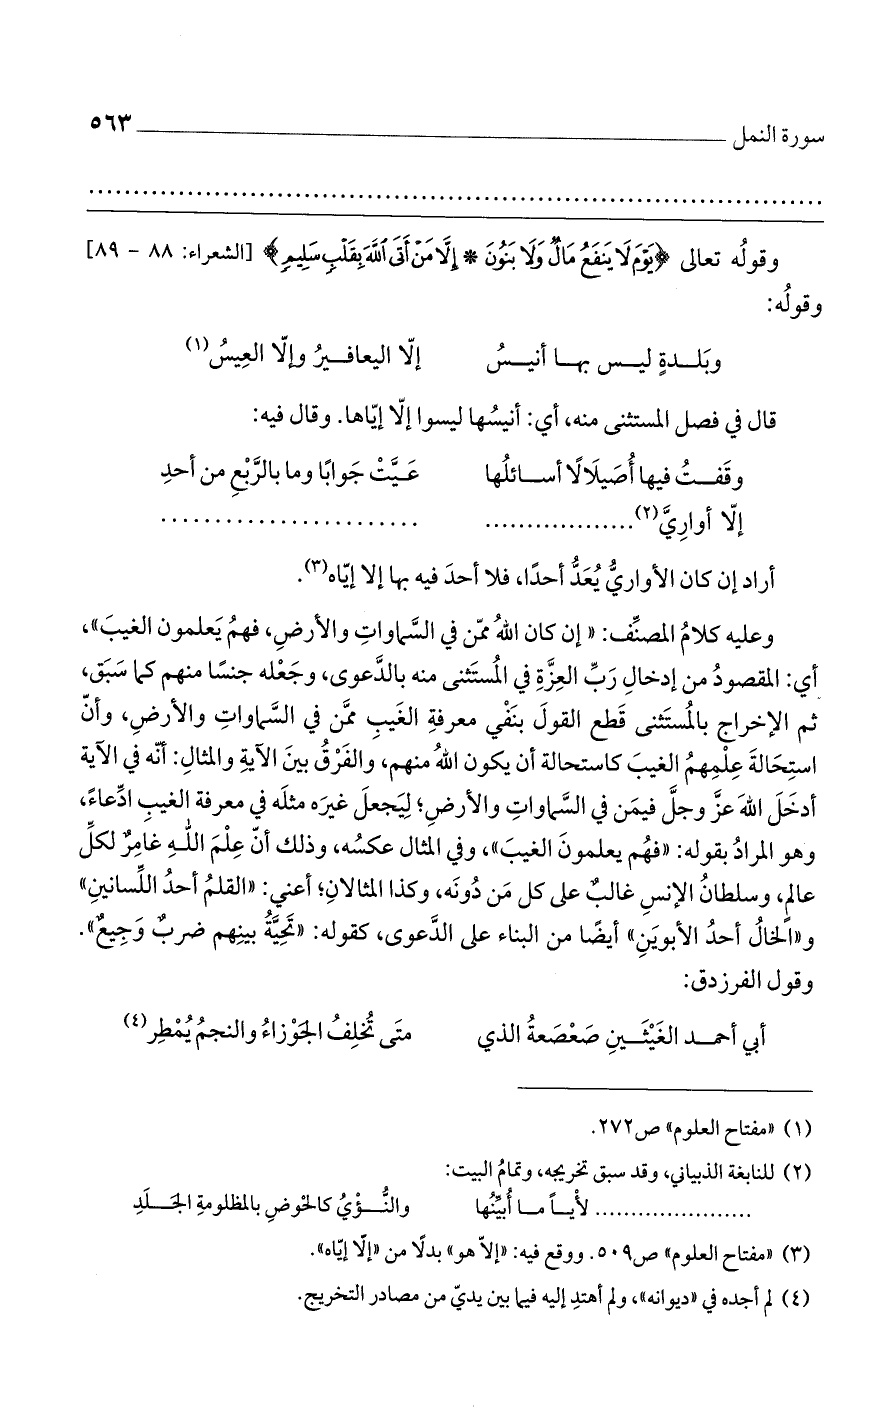 سورة النمل ٥٦٣
وقولُه تعالى ﴿يَوْمَ لَا يَنفَعُ مَالٌ وَلَا بَنُونَ * إِلَّا مَنْ أَتَى ٱللَّهَ بِقَلْبٍ سَلِيمٍ﴾ [الشعراء: ٨٨ - ٨٩]
وقولُه:
وبَلــدةٍ ليــس بهــا أنيــسُ إلّا اليعافــيرُ وإلّا العِيسُ(١)
قال في فصل المستثنى منه، أي: أنيسُها ليسوا إلّا إيّاها. وقال فيه:
وقَفــتُ فيها أُصَيلَالًا أســائلُها عَـيَّتْ جَوابًا وما بالرَّبْعِ من أحدِ
إلّا أوارِيَّ(٢).................. ........................
أراد إن كان الأواريُّ يُعَدُّ أحدًا، فلا أحدَ فيه بها إلا إيّاه(٣).
وعليه كلامُ المصنِّف: «إن كان اللهُ ممّن في السَّماواتِ والأرضِ، فهمُ يَعلمون الغيبَ»،
أي: المقصودُ من إدخالِ رَبِّ العِزَّةِ في المُستَثنى منه بالدَّعوى، وجَعْله جنسًا منهم كما سَبَق،
ثم الإخراج بالمُستَثنى قَطع القولَ بنَفْي معرفةِ الغَيبِ ممَّن في السَّماواتِ والأرضِ، وأنّ
استِحَالةَ عِلْمِهمُ الغيبَ كاستحالة أن يكون اللهُ منهم، والفَرْقُ بينَ الآيةِ والمثالِ: أنّه في الآية
أدخَلَ اللهَ عزَّ وجلَّ فيمَن في السَّماواتِ والأرضِ؛ ليَجعلَ غيرَه مثلَه في معرفة الغيبِ ادِّعاءً،
وهو المرادُ بقوله: «فهُم يعلمونَ الغيبَ»، وفي المثال عكسُه، وذلك أنّ عِلْمَ اللهِ غامِرٌ لكلِّ
عالمٍ، وسلطانُ الإنسِ غالبٌ على كل مَن دُونَه، وكذا المثالانِ؛ أعني: «القلمُ أحدُ اللِّسانينِ»
و«الخالُ أحدُ الأبويَنِ» أيضًا من البناء على الدَّعوى، كقوله: «تَحِيَّةُ بينِهم ضربٌ وَجِيعٌ».
وقول الفرزدق:
أبي أحمــد الغَيْثَــينِ صَعْصَعةُ الذي متَى تُخلِفُ الجَوْزاءُ والنجمُ يُمْطِرِ(٤)
(١) «مفتاح العلوم» ص٢٧٢.
(٢) للنابغة الذبياني، وقد سبق تخريجه، وتمامُ البيت:
..................... لأْيــاً مــا أُبيِّنُها والنُّــؤْيُ كالحوضِ بالمظلومةِ الجَــلَدِ
(٣) «مفتاح العلوم» ص٥٠٩. ووقع فيه: «إلاّ هو» بدلًا من «إلّا إيّاه».
(٤) لم أجده في «ديوانه»، ولم أهتدِ إليه فيما بين يديّ من مصادر التخريج.